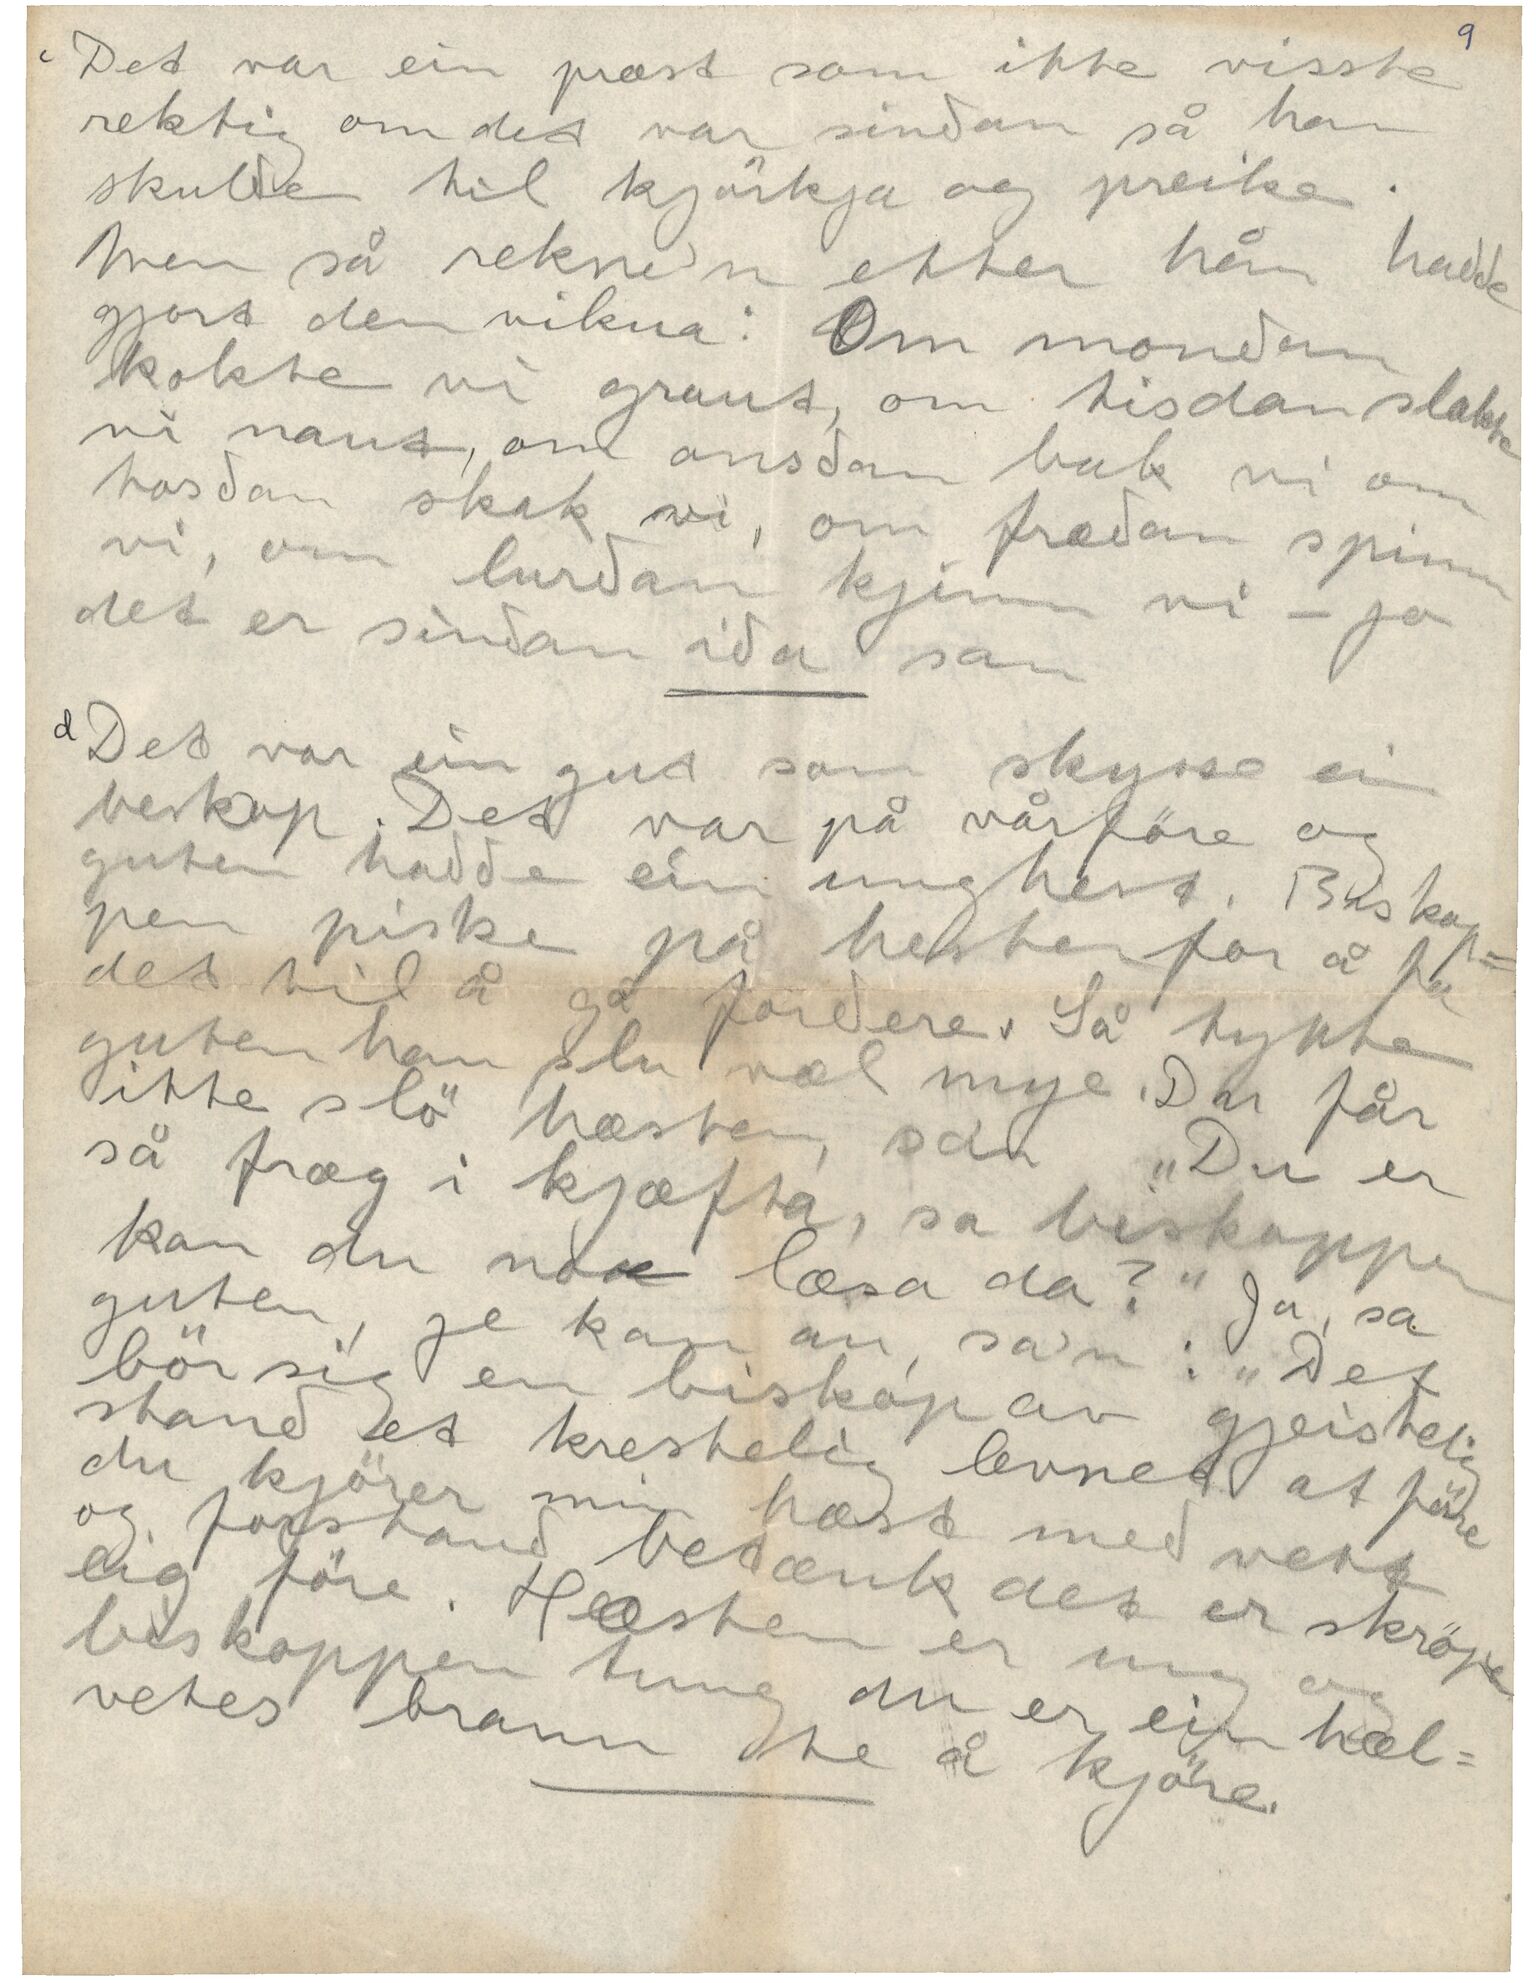 9
c Det var ein præst som ikke visste
rektig om det var sinðan så han
skulðe til kjörkja og preike.
Men så rekne'n etter hån haððe
gjort den vikua: Om monðan
kokte vi graut, om tisdan slakte
vi naut, om onsðan bak vi om
tosðan skak vi, om fræðan spinn
vi, om lurðan kjinn vi – ja
det er sinðan iða san
d Det var ein gut som skysse ein
beskop. Det var på vårföre og
guten haððe ein unghest. Biskop=
pen piske på hesten for å få
det til å gå forðere. Så tykte
guten han slu væl mye. Du får
ikke slö hæsten, sa'n „Du er
så fræg i kjæfta, sa biskoppen
kan du nok læsa da?" Ja, sa
guten, je kan an, sa'n: „Det
bör sig en biskop av gjeistelig
stanð et krestelig levned at före
du kjörer min hæst með vett
og forstanð betænk det er skröpe
lig före. Hæsten er ung og
biskoppen tung du er ein hæl=
vetes brann te å kjöre.